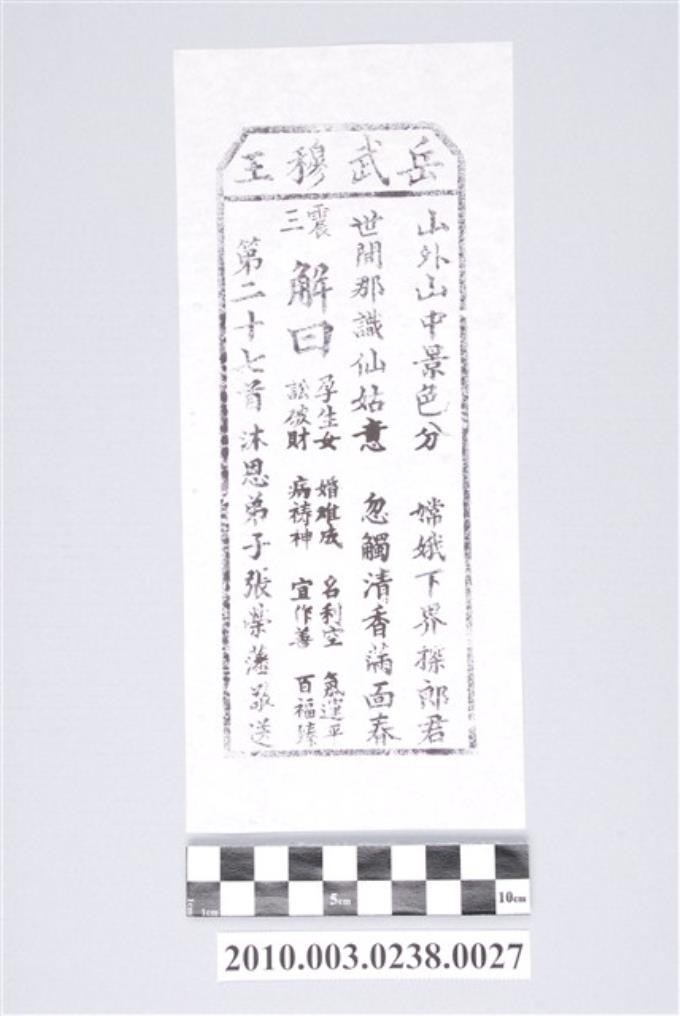 岳武穆王
山外山中景色分　嫦娥下界探郎君
世間那識仙姑意　忽觸清香滿面春
震三
解曰
孕生女　婚难成　名利空　氣運平
訟破財　病祷神　宜作善　百福臻
第二十七首　沐恩弟子張榮藩敬送
1cm 1cm 5cm 10cm
2010.003.0238.0027